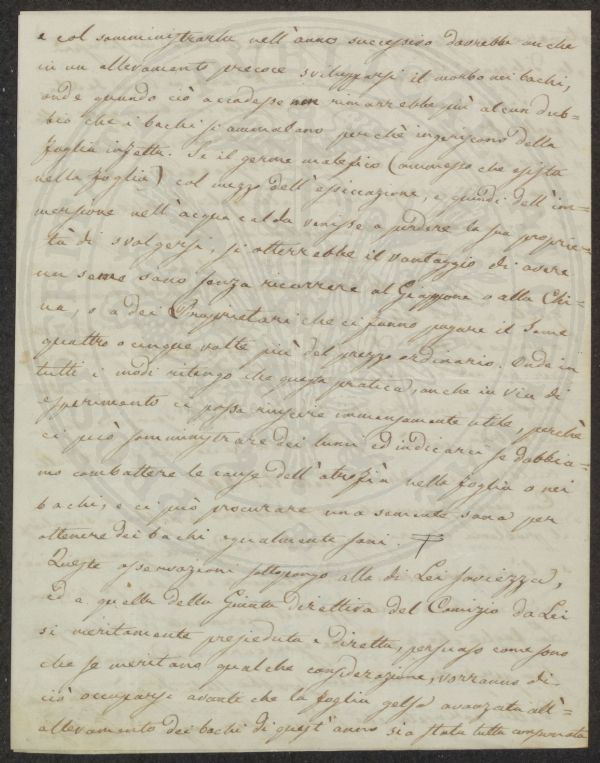 e col somministrarla nell'anno successivo dovrebbe anche
in un allevamento precoce svilupparsi il morbo nei bachi,
onde quando ciò accadesse non rimarrebbe più alcun dub=
bio che i bachi si ammalano perchè ingeriscono della
foglia infetta. Se il germe malefico (ammesso che esista
nella foglia) col mezzo dell'essiccazione, e quindi dell'im=
mersione nell'acqua calda venisse a perdere la sua proprie=
tà di svolgersi, si otterrebbe il vantaggio di avere
un seme sano senza ricorrere al Giappone o alla Chi=
na, o a dei Proprietari che ci fanno pagare il seme
quattro o cinque volte più del prezzo ordinario. Onde in
tutti i modi ritengo che questa pratica, anche in via di
esperimento ci possa riuscire immensamente utile, perchè
ci può somministrare dei lumi ed indicarci se dobbia=
mo combattere le cause dell'atrofia nella foglia o nei
bachi, e ci può procurare una semente sana per
ottenere dei bachi egualmente sani.
Queste osservazioni sottopongo alla di Lei saviezza,
ed a quella della Giunta direttiva del Comizio da Lei
si meritamente presieduta e diretta, persuaso come sono
che se meritano qualche considerazione, vorranno di
ciò occuparsi avante che la foglia gelsa avanzata all'=
allevamento dei bachi di quest'anno sia stata tutta consumata